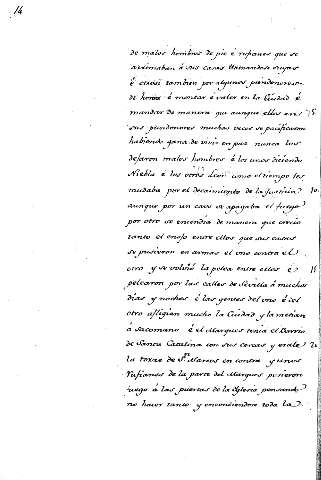 14
de malos hombres de pie é rufianes que se
arrimaban á sus casas llamandose suyos
é ctaosi tambien por algunos pundonores
de honra é mansar é valer en la Ciudad é
mandar de manera que aunque ellos en 5
sus pundonores muchas veces se pacificaron
habiendo gana de vivir en paz nunca los
dejaron malos hombres á los unos diciendo
Niebla é los otros Leon como el tiempo les
mudaba por el decaimiento de la Justicia 10
aunque por un cavo se apagaba el fuego
por otro se encendia de manera que crecio
tanto el enojo entre ellos que sus casas
se pusieron en armas el uno contra el
otro y se volvió la pelea entre ellos é 15
pelearon por las calles de Sevilla á muchos
dias y noches é las gentes del uno é el
otro afligian mucho la Ciudad y la metian
á sacomano é el Marques tenia el Barrio
de Santa Catalina con sus cercas y é la de 20
la torre de Sn. Marcos en contra y unos
rufianes de la parte del Marques pusieron
fuego á las puertas de la Iglesia pensando
no hacer tanto y encendiendose toda la